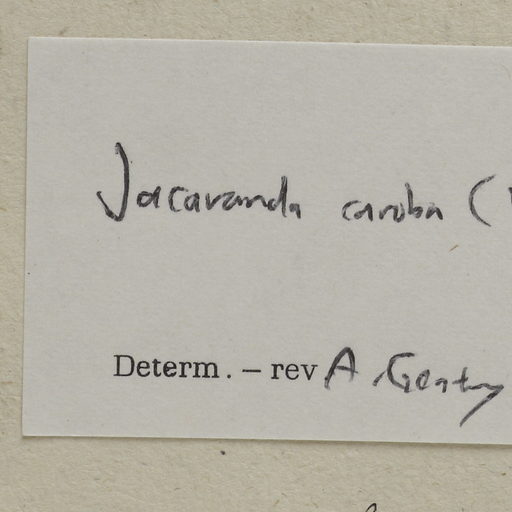 Jacaranda caroba (
Determ. – rev A. Gentry